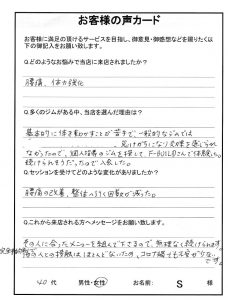 お客様の声カード
お客様に満足の頂けるサービスを目指し、御意見・御感想などを賜りたく以下の御記入をお願い致します。
Q.どのようなお悩みで当店に来店されましたか？
腰痛、体力強化
Q.多くのジムがある中、当店を選んだ理由は？
基本的に体を動かすことが苦手で、一般的なジムでは
なかったので、個人指導のジムを探して、F-BUILDさんで体験し、
続けられそうだったので入会した。
Q.セッションを受けてどのような変化がありましたか？
腰痛の改善、整体へ行く回数が減った。
Q.これから来店される方へメッセージをお願い致します。
その人に合ったメニューを組んで下さるので、無理なく続けられます。
他の人との接触はほとんどないため、コロナ禍でも不安が少ない
です。
40代 男性・女性 お名前: S 様